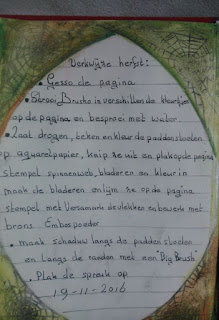 Werkwijze herfst:
• Gesso de pagina
• Strooi Brusho in verschillende kleurtjes
op de pagina en besproei met water.
• Laat drogen, teken en kleur de paddenstoelen
op aquarelpapier, knip ze uit en plak op de pagina
Stempel spinnenweb, bladeren en kleur in
maak de bladeren en lijm ze op de pagina
stempel met Versamark de vlekken en bewerk met
brons Embospoeder
• maak schaduw langs de paddenstoelen
en langs de randen met een "Big Brush"
• Plak de spreuk op
19-11-2016